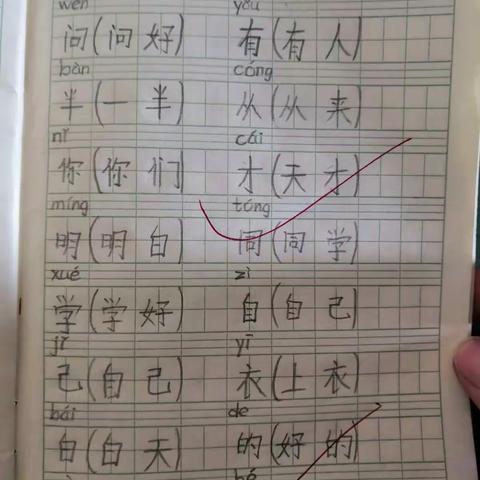 wèn yǒu
问(问好) 有(有人)
bàn cóng
半(一半) 从(从来)
nǐ cái
你(你们) 才(天才)
míng tóng
明(明白) 同(同学)
xué zì
学(学好) 自(自己)
jǐ yī
己(自己) 衣(上衣)
bái de
白(白天) 的(好的)